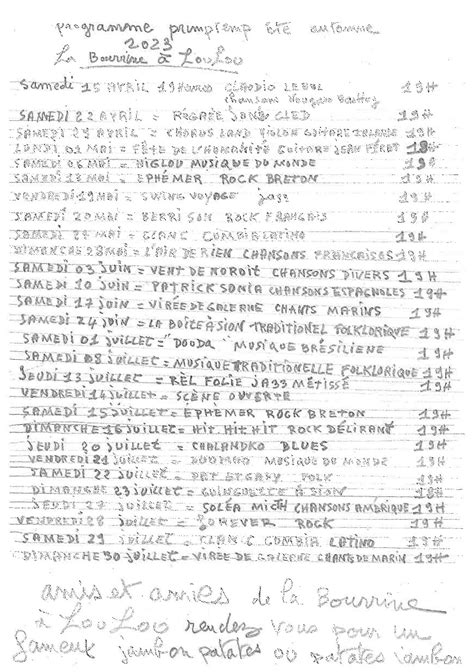 programme primptemp été automne
2023
La Bourrine à LouLou
Samedi 15 AVRIL CLAUDIO 19H
chansons
SAMEDI 22 AVRIL = JOHN CLED 19H
SAMEDI 29 AVRIL = CHORUS LAND VIOLON GUITARE IRLANDE 19H
LUNDI 01 MAI = FÊTE DE L'HUMANITÉ GUITARE JEAN FERAT 18H
SAMEDI 06 MAI = NIGLOU MUSIQUE DU MONDE 19H
SAMEDI 13 MAI = EPHÉMER ROCK BRETON 19H
VENDREDI 19 MAI = SWING VOYAGE jazz 19H
SAMEDI 20 MAI = BERRISON ROCK FRANÇAIS 19H
SAMEDI 27 MAI = CLANC COMBIA LATINO 19H
DIMANCHE 28 MAI = L'AIR DE RIEN CHANSONS FRANCAISES 19H
SAMEDI 03 juin = VENT DE NOROIT CHANSONS DIVERS 19H
SAMEDI 10 juin = PATRICK SONIA CHANSONS ESPAGNOLES 19H
SAMEDI 17 juin = VIRÉE DE GALERNE CHANTS MARINS 19H
SAMEDI 24 juin = LA BOITE À SION TRADITIONEL FOLKLORIQUE 19H
SAMEDI 01 juillet = DOUDA MUSIQUE BRÉSILIENE 19H
SAMEDI 08 juillet = MUSIQUE TRADITIONELLE FOLKLORIQUE 19H
JEUDI 13 juillet = REL FOLIE JAZZ MÉTISSÉ 19H
VENDREDI 14 juillet = SCÈNE OUVERTE
SAMEDI 15 juillet = EPHÈMER ROCK BRETON 19H
DIMANCHE 16 juillet = HIT HIT HIT ROCK DÉLIRANT 19H
jEUDI 20 juillet = CHALANDKO BLUES 19H
VENDREDI 21 juillet = MUSIQUE DU MONDE 19H
SAMEDI 22 juillet = PAT ET GARY FOLK 19H
DIMANCHE 23 juillet = GUINGUETTE À SION 18H
jEUDI 27 juillet = SOLÉA MICTH CHANSONS AMÉRIQUE 19H
VENDREDI 28 juillet = FOREVER ROCK 19H
SAMEDI 29 juillet = CLANC COMBIA LATINO 19H
DIMANCHE 30 juillet = VIRÉE DE GALERNE CHANT DE MARIN 19H
amis et amies de la Bourrine
à LouLou rendez vous pour un
fameux jambon patates ou patates jambon